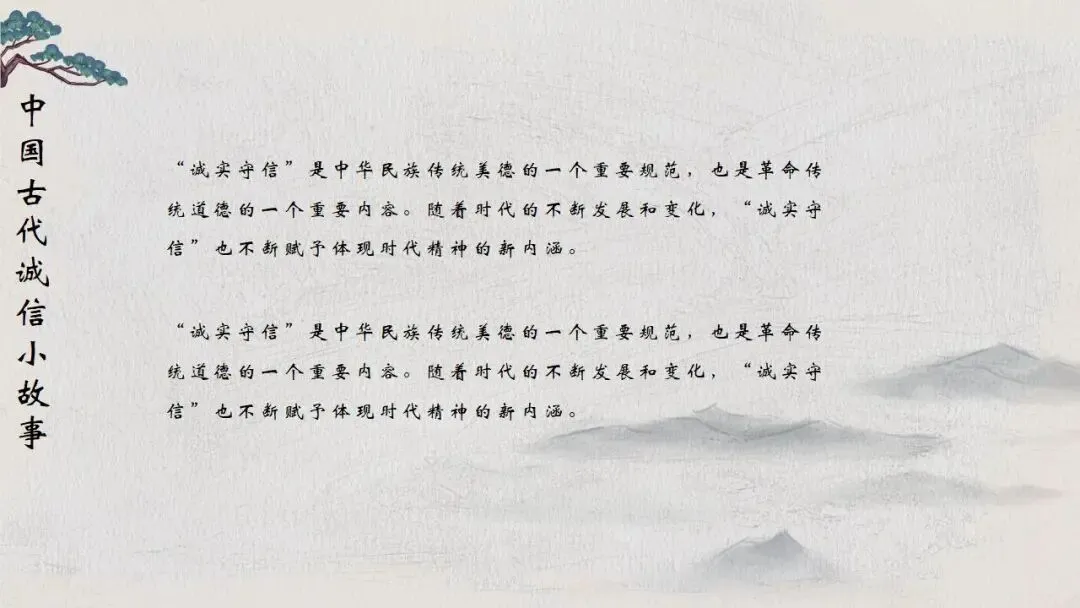 中国古代诚信小故事
“诚实守信”是中华民族传统美德的一个重要规范，也是革命传
统道德的一个重要内容。随着时代的不断发展和变化，“诚实守
信”也不断赋予体现时代精神的新内涵。
“诚实守信”是中华民族传统美德的一个重要规范，也是革命传
统道德的一个重要内容。随着时代的不断发展和变化，“诚实守
信”也不断赋予体现时代精神的新内涵。